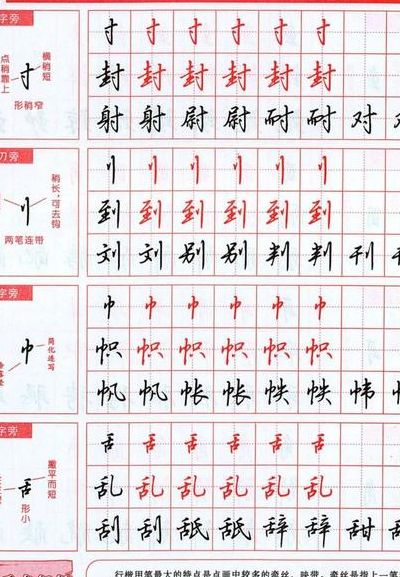 字旁
点稍靠上
寸
横稍短
形稍窄
寸 寸 寸 寸 寸 寸
封 封 封 封 封 封
射 射 尉 尉 耐 耐 对
刀旁
刂
稍长,可去钩
两笔连带
刂 刂 刂 刂 刂 刂
到 到 到 到 到 到
刘 刘 别 别 判 判 刊
字旁
巾
简化连写
巾 巾 巾 巾 巾 巾
帜 帜 帜 帜 帜 帜
帆 帆 帐 帐 帙 帙 帏
字旁
舌
撇平而短
形小
舌 舌 舌 舌 舌 舌
乱 乱 乱 乱 乱 乱
刮 刮 舐 舐 辞 辞 甜
行楷用笔最大的特点是点画中较多的牵丝、映带。牵丝是指上一笔